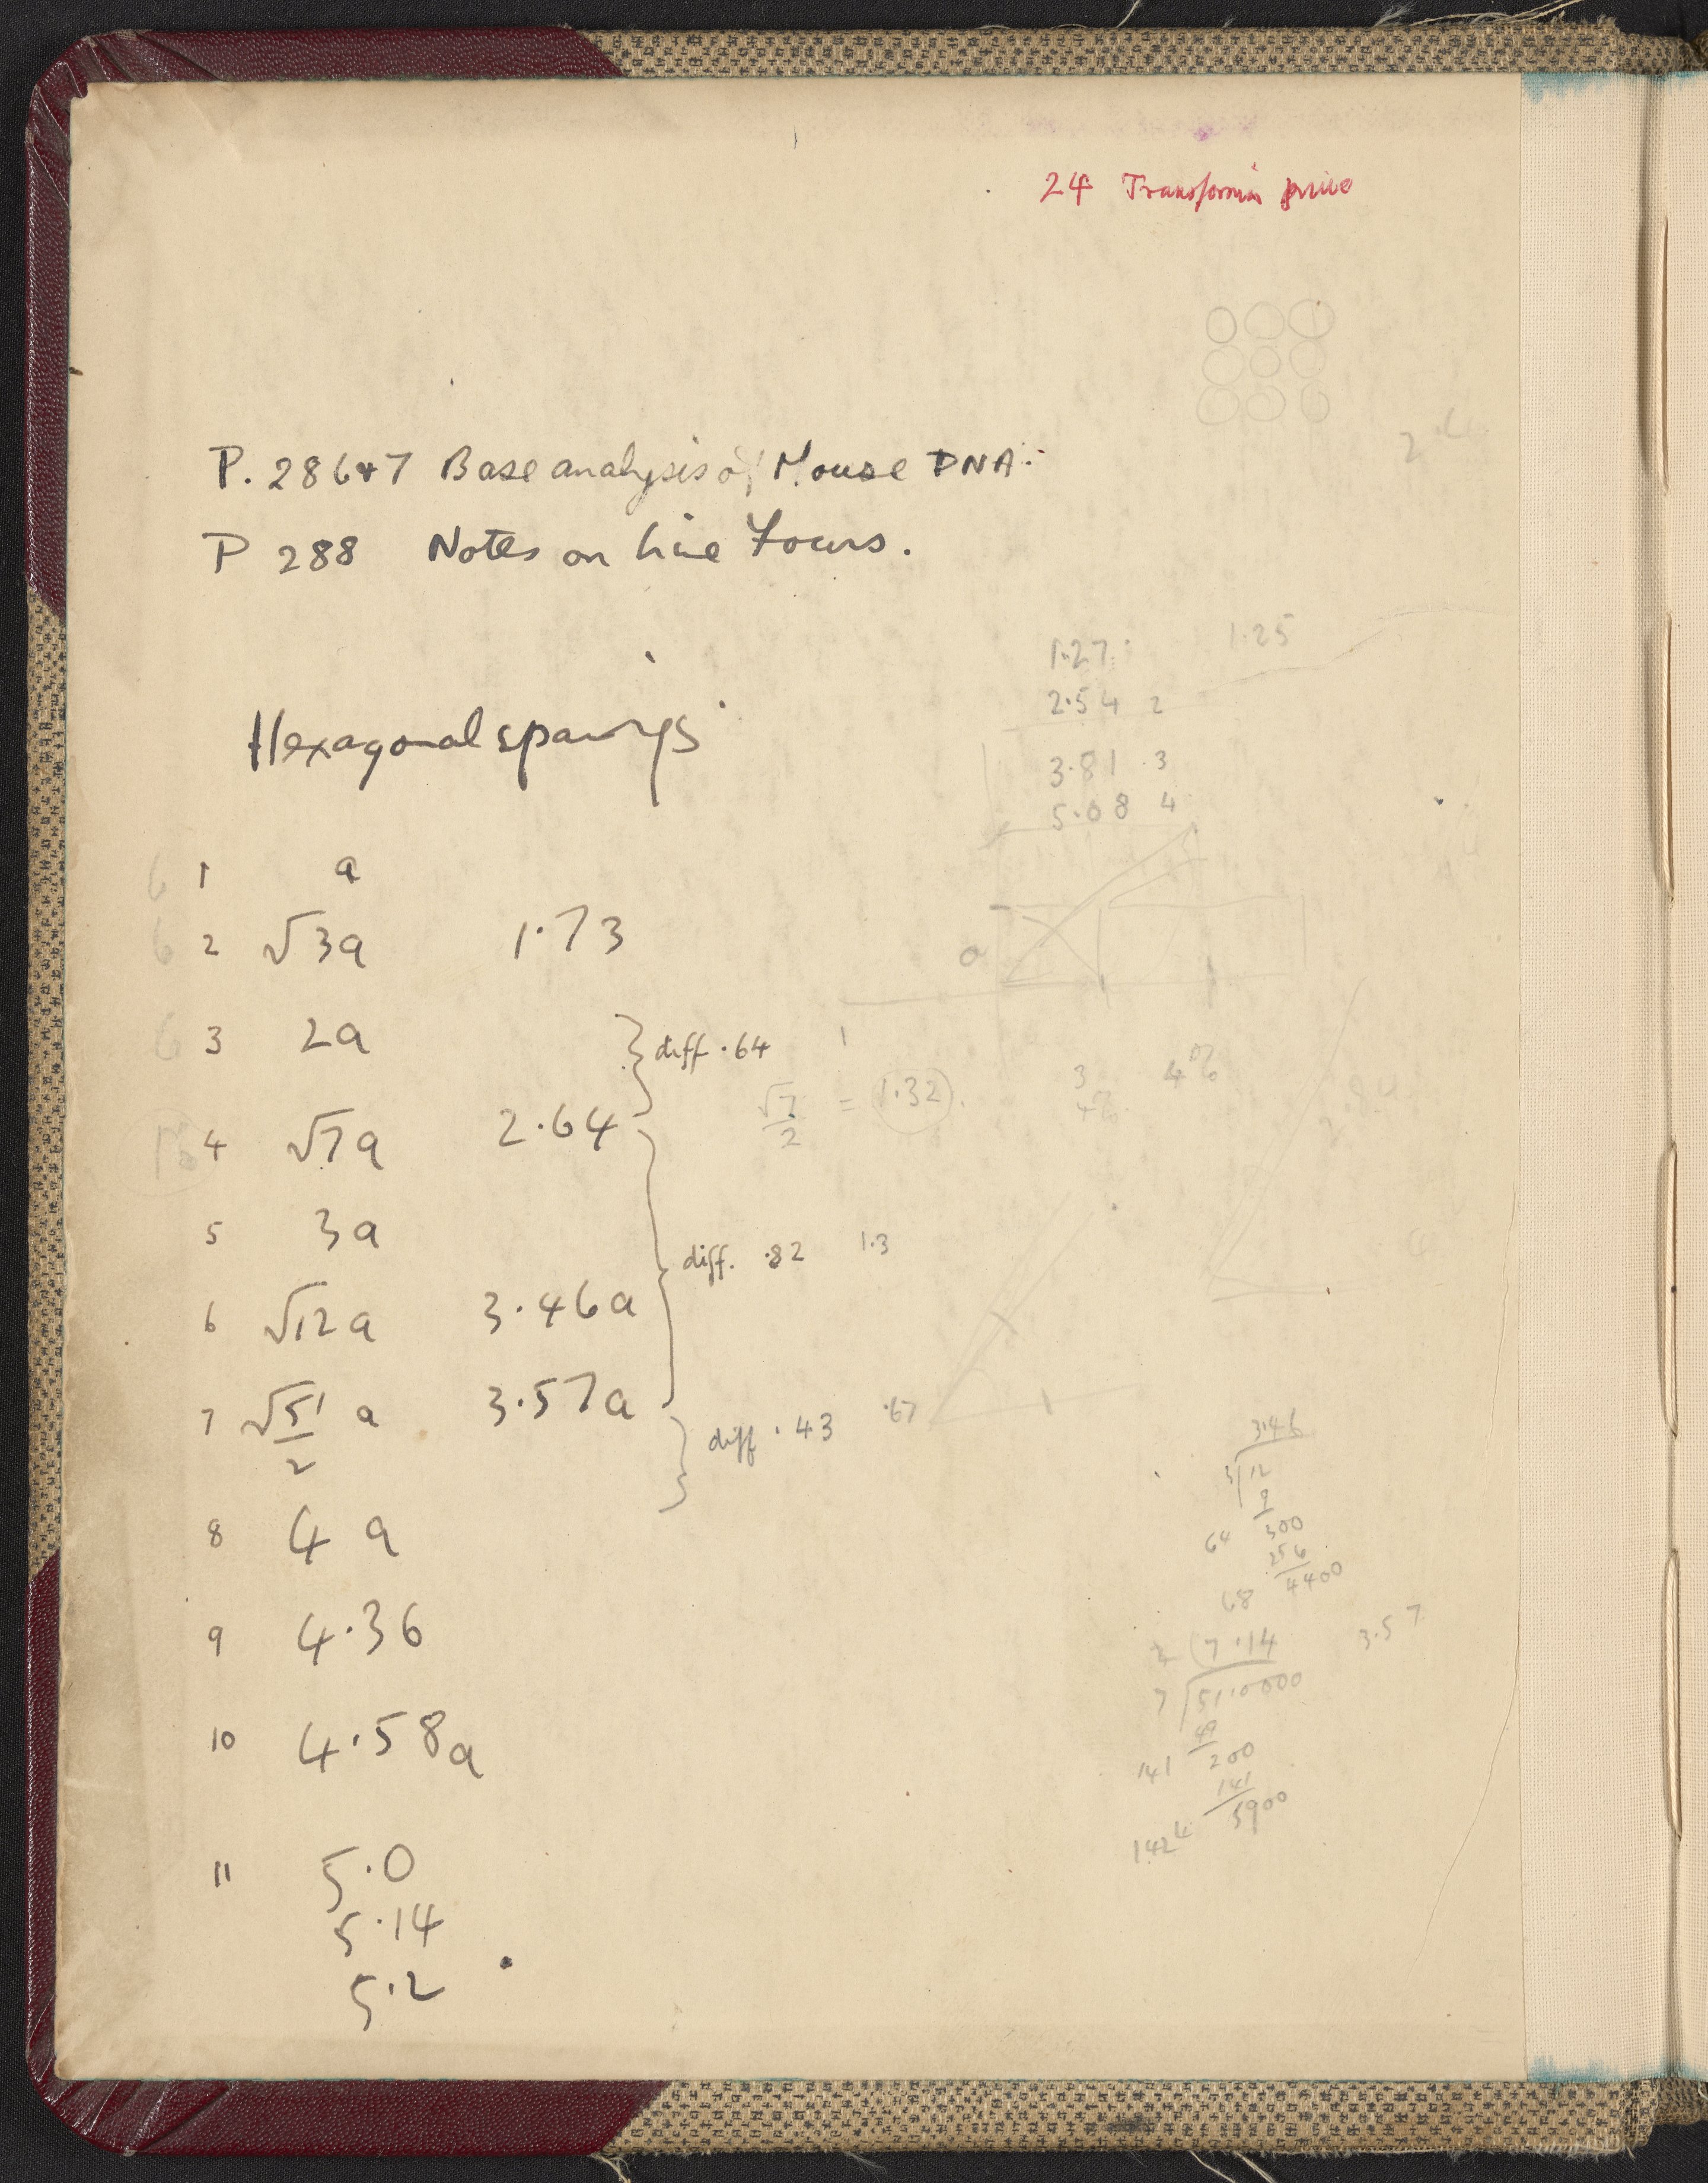 24 Transformin
P. 286+7 Base analysis of Mouse DNA.
P 288 Notes on line focus.
1.27 1.25
2.54 2
3.81 3
5.08 4
Hexagonal spacings
6 1 a
6 2 √3a 1.73
6 3 2a
diff .64
√7/2 = 1.32
4 √7a 2.64
5 3a
diff. .82 1.3
6 √12a 3.46a
7 √51/2 a 3.57a
diff .43 .67
8 4a
9 4.36
10 4.58a
11 5.0
5.14
5.2
3.46
3 12
9
64 300
256
68 4400
2 7.14 3.57
7 51.0000
49
141 200
141
1424 5900